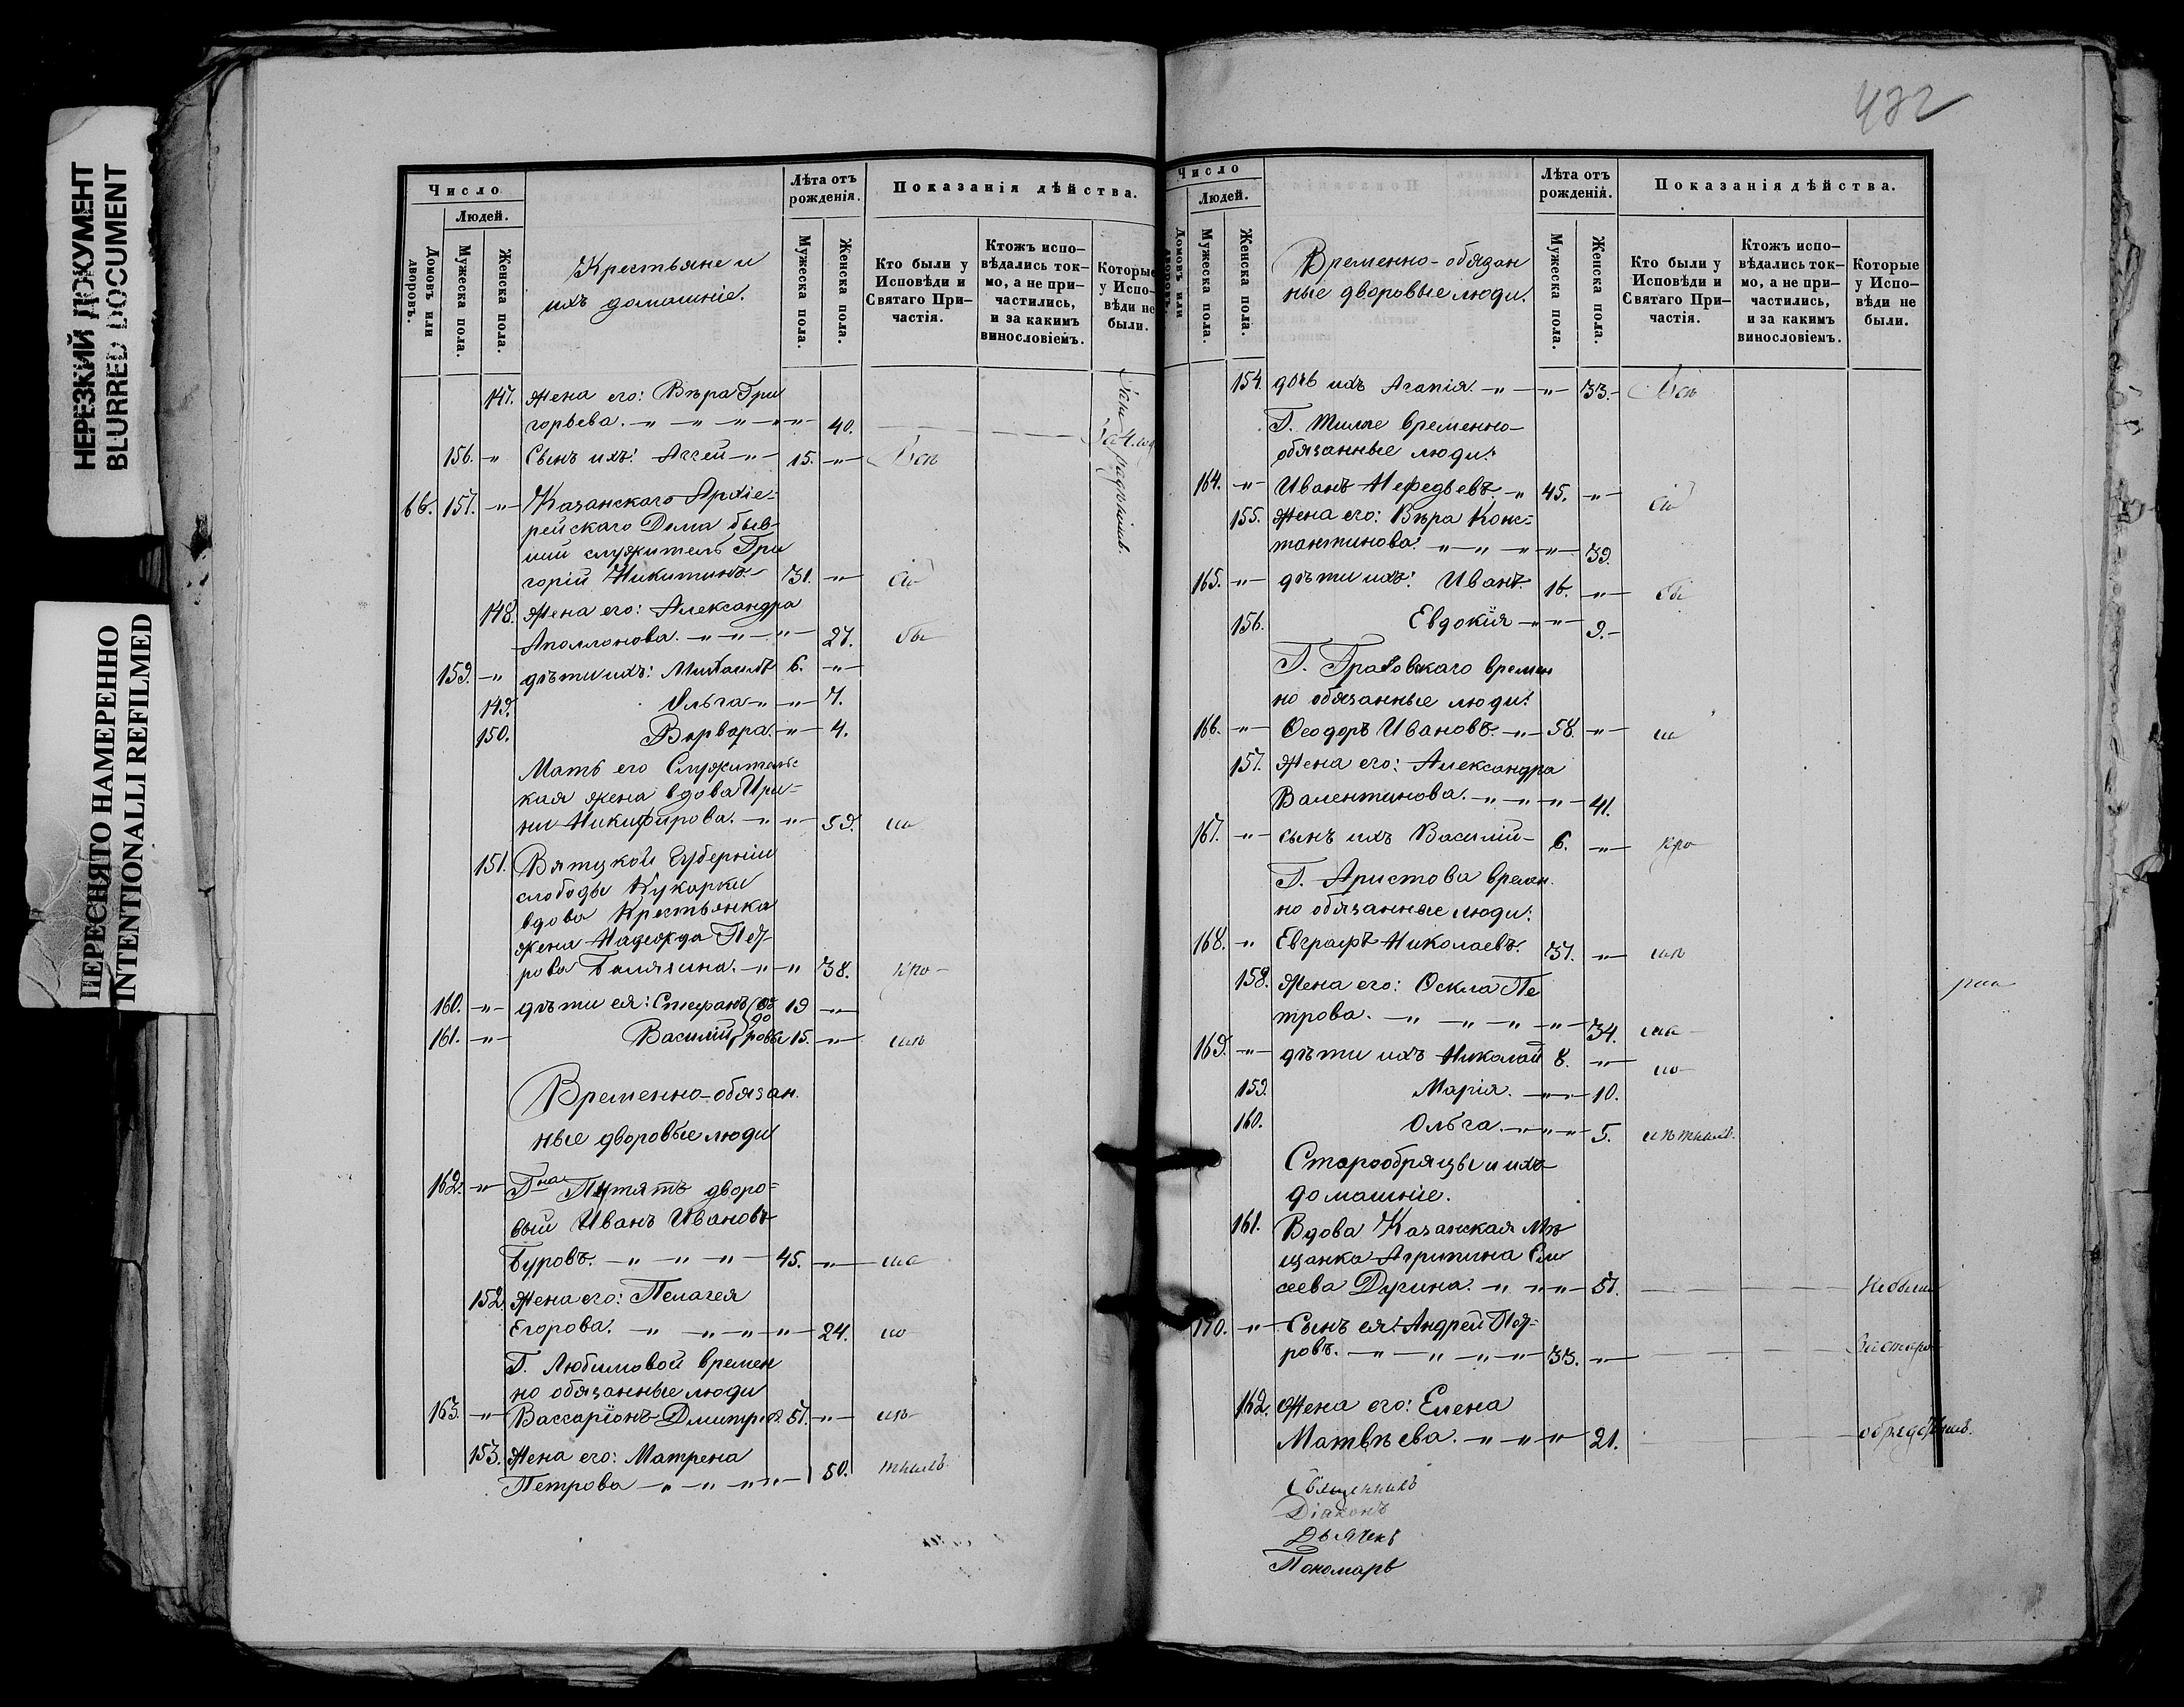 НЕРЕЗКИЙ ДОКУМЕНТ
BLURRED DOCUMENT
ПЕРЕСНЯТО НАМЕРЕННО
INTENTIONALLI REFILMED
Число
Людей.
Домовъ или дворовъ.
Мужеска пола.
Женска пола.
Крестьяне и
ихъ домашніе.
Лѣта отъ рожденія.
Мужеска пола.
Женска пола.
Показанія дѣйства.
Кто были у Исповѣди и Святаго Причастія.
Ктожъ исповѣдались токмо, а не причастились, и за какимъ винословіемъ.
Которые у Исповѣди не были.
147. Жена его: Вѣра Гри
горьева. -"- " -"- " -"- 40.
156. -" Сынъ ихъ: Аггей -"- 15. -"-
66. 157. -"- Казанскаго Архіе-
рейскаго Дома быв-
шій служитель Гри
горій Никитинъ- 31. -"-
148. Жена его: Александра
Аполлонова. -"- "- -"- 27. бы
159. -" дѣти ихъ: Михаилъ 6. -"-
149. Ольга -"- -"- 7.
150. Варвара. -"- 4.
Мать его Служитель-
ская жена вдова Ири-
на Никифирова. -"- -"- 59.
151. Вятской Губерніи
слободы Кукарки
вдова Крестьянка
жена Надежда Пет-
рова -"- " 38. кро-
160. -"- дѣти ея: Стефанъ 19 -"-
161. -"- Василій 15. -"-
Временно-обязан.
ные дворовые люди
162. -"- Г-на дворо-
вый Иванъ Ивановъ
Буровъ. -"- -"- -"- 45. -"-
152. Жена его: Пелагея
Егорова. -"- -"- -"- -"- 24.
Г. Любимовой времен
но обязанные люди
163. -"- Вассаріонъ Дмитр. 57. -"-
153. Жена его: Матрена
Петрова -"- -"- -"- 50.
432
Число
Людей.
Домовъ или дворовъ.
Мужеска пола.
Женска пола.
Временно-обязан
ные дворовые люди.
Лѣта отъ рожденія.
Мужеска пола.
Женска пола.
Показанія дѣйства.
Кто были у Исповѣди и Святаго Причастія.
Ктожъ исповѣдались токмо, а не причастились, и за какимъ винословіемъ.
Которые у Исповѣди не были.
154. дочь ихъ Агапія. -"- -"- 33.-
Г. Тиле временно-
обязанные люди:
164. -"- Иванъ Нефедьевъ. -"- 45. -"-
155. Жена его: Вѣра Конс-
тантинова. -"- -"- -"- 39.
165. -"- дѣти ихъ: Иванъ. 16. -"-
156. Евдокія -"- -"- 9.-
времен
но обязанные люди:
166. -"- Ѳеодоръ Ивановъ. -"- 58. -"-
157. Жена его: Александра
Валентинова. -"- -"- -"- 41.
167. -"- сынъ ихъ Василій- 6. -"- кро
Г. Аристова времен.
но обязанные люди:
168. -" Евграфъ Николаевъ. 37. -"-
158. Жена его: Ѳекла Пе
трова. -"- -"- -"- -"- 34.
169. -"- дѣти ихъ Николай 8. -"-
159. Марія. -"- 10.
160. Ольга. -"- -"- 5.
Старообрядцы и ихъ
домашніе.
161. Вдова Казанская Мѣ
щанка Агрипина Ели
сеева Дурина. -"- -"- 57. Не были
170. -"- Сынъ ея: Андрей Пет-
ровъ. -"- -"- -"- -"- 33. -"-
162. Жена его: Елена
Матвѣева. -"- -"- -"- 21.
Священникъ
Діаконъ
Дьячекъ
Пономарь